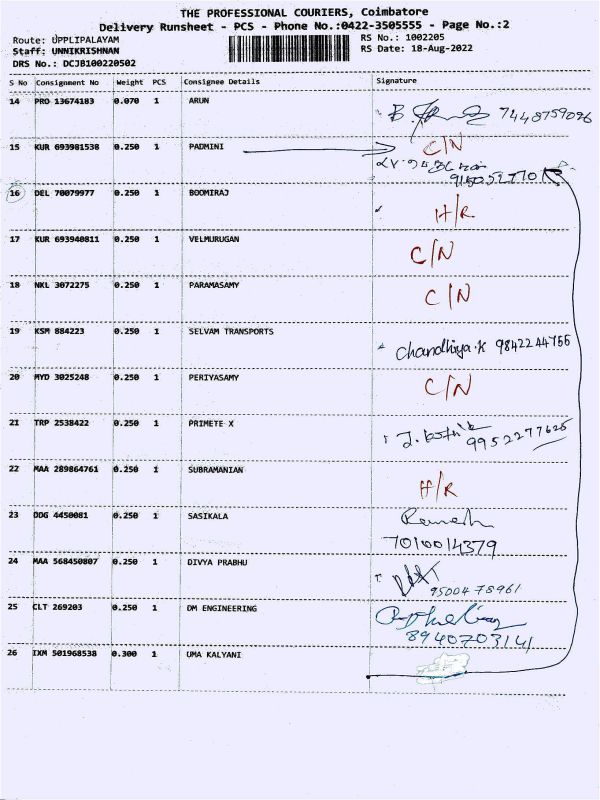 THE PROFESSIONAL COURIERS, Coimbatore
Delivery Runsheet - PCS - Phone No.:0422-3505555 - Page No.:2
Route: UPPLIPALAYAM RS No.: 1002205
Staff: UNNIKRISHNAN RS Date: 18-Aug-2022
DRS No.: DCJB100220502
S No Consignment No Weight PCS Consignee Details Signature
14 PRO 13674183 0.070 1 ARUN 7448759096
15 KUR 693981538 0.250 1 PADMINI C/N
16 DEL 70079977 0.250 1 BOOMIRAJ H/R
17 KUR 693940811 0.250 1 VELMURUGAN C/N
18 NKL 3072275 0.250 1 PARAMASAMY C/N
19 KSM 884223 0.250 1 SELVAM TRANSPORTS Chandhiya.K 9842244755
20 MYD 3025248 0.250 1 PERIYASAMY C/N
21 TRP 2538422 0.250 1 PRIMETE X 9952277625
22 MAA 289864761 0.250 1 SUBRAMANIAN H/R
23 DDG 4450081 0.250 1 SASIKALA Ramesh
7010014379
24 MAA 568450807 0.250 1 DIVYA PRABHU
9500478961
25 CLT 269203 0.250 1 DM ENGINEERING
8940703141
26 IXM 501968538 0.300 1 UMA KALYANI